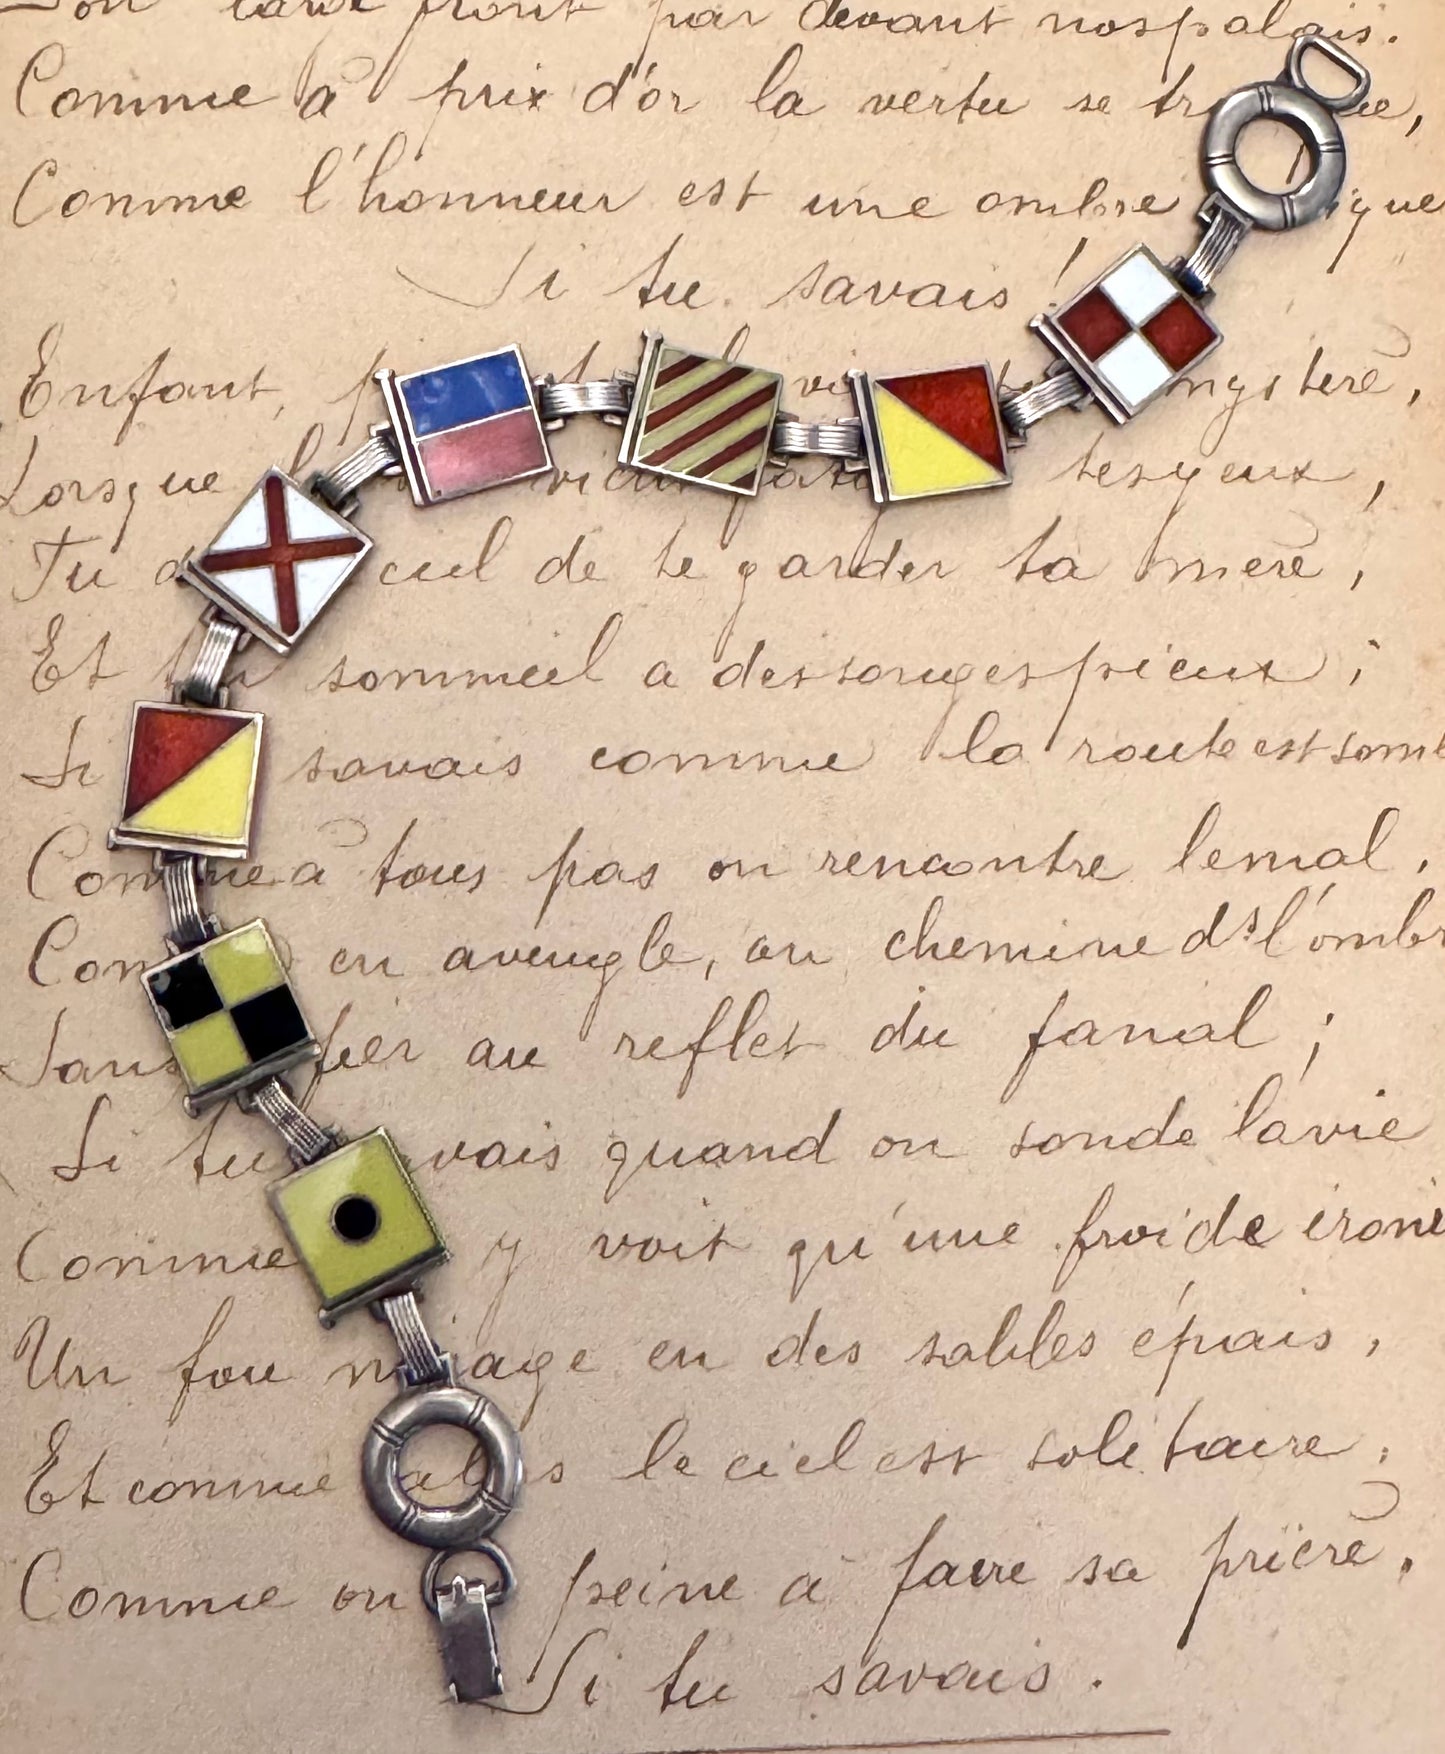 par devant nos palais.
Comme à prix d'or la vertu se
Comme l'honneur est une ombre
Si tu savais !
Enfant, mystère,
Lorsque tes yeux,
Tu de te garder ta mère,
Et sommeil a des songes pieux ;
Si savais comme la route est
Comme à tous pas on rencontre le mal,
en aveugle, on chemine ds l'ombre
Sans au reflet du fanal ;
Si tu quand on sonde la vie
Comme y voit qu'une froide ironie
Un fou en des sables épais,
Et comme le ciel est solitaire,
Comme on peine à faire sa prière,
Si tu savais.